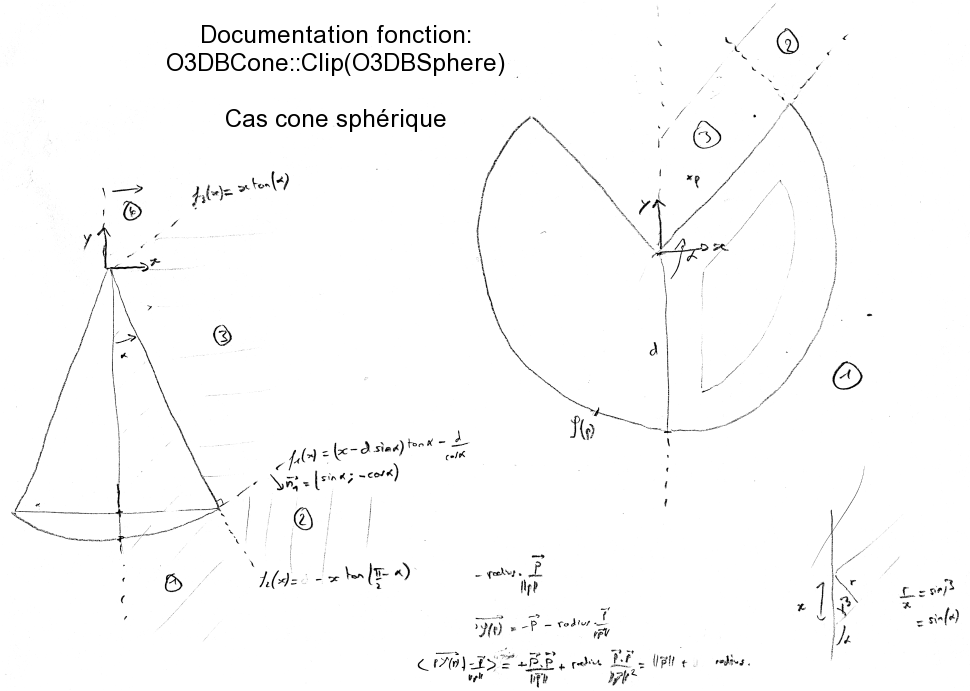 Documentation fonction:
O3DBCone::Clip(O3DBSphere)
Cas cone sphérique
②
③
p
y
x
α
d
f(p)
①
f₃(x) = x tan(α)
④
y
x
α
③
f₁(x) = (x - d sinα) tanα - d/cosα
n₁ = (sinα ; -cosα)
②
f₂(x) = -x tan(π/2 - α)
①
- radius. p/||p||
= -p - radius p/||p||
= ||p|| + radius.
x
r
α
r/x = sinβ
= sin(α)